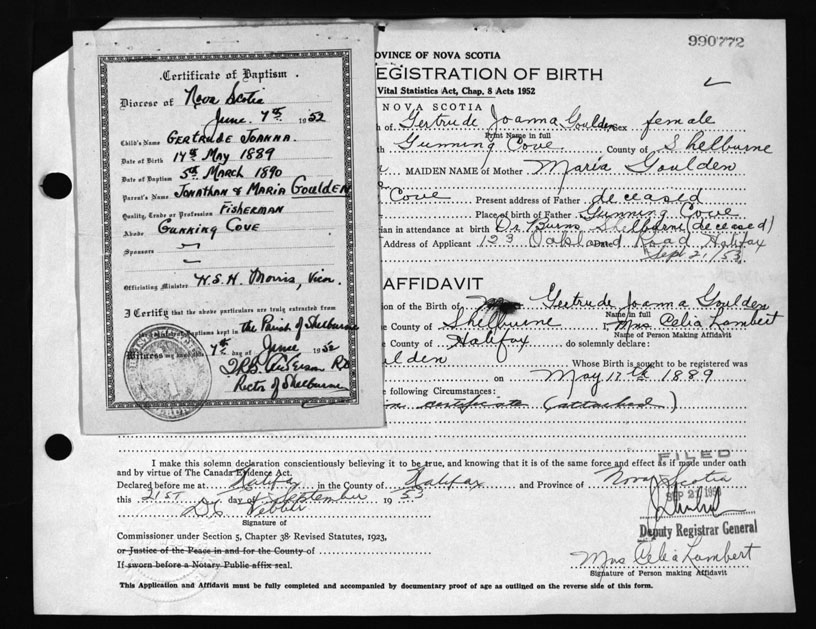 Certificate of Baptism.
Diocese of Nova Scotia
June 7th 1952
Child's Name GERTRUDE JOANNA.
Date of Birth 17th MAY 1889
Date of Baptism 5th MARCH 1890
Parent's Name JONATHAN & MARIA GOULDEN
Quality, Trade or Profession FISHERMAN
Abode GUNNING COVE
Sponsors
Officiating Minister W.S.H. Morris, Vicar.
I Certify that the above particulars are truly extracted from
Baptisms kept in the Parish of Shelburne
Witness my hand this 7th day of June 1952
Rector of Shelburne
990772
OVINCE OF NOVA SCOTIA
EGISTRATION OF BIRTH
Vital Statistics Act, Chap. 8 Acts 1952
NOVA SCOTIA
of Gertrude Joanna Goulden Sex female
Print Name in full
Gunning Cove County of Shelburne
MAIDEN NAME of Mother Maria Goulden
Cove Present address of Father deceased
Place of birth of Father Gunning Cove
ian in attendance at birth Dr. Burns Shelburne (deceased)
Address of Applicant 123 Oakland Road Halifax
Date Sept 21/53
AFFIDAVIT
ion of the Birth of Gertrude Joanna Goulden
Name in full
e County of Shelburne, Mrs Celia Lambert
Name of Person Making Affidavit
County of Halifax do solemnly declare:
ulden Whose Birth is sought to be registered was
on May 17th 1889
e following Circumstances:
certificate (attached)
I make this solemn declaration conscientiously believing it to be true, and knowing that it is of the same force and effect as if made under oath
and by virtue of The Canada Evidence Act.
FILED
Declared before me at Halifax in the County of Halifax and Province of Nova Scotia
this 21ST day of September 1953
SEP 21 1953
Signature of
Deputy Registrar General
Commissioner under Section 5, Chapter 38 Revised Statutes, 1923,
or Justice of the Peace in and for the County of
If sworn before a Notary Public affix seal.
Mrs Celia Lambert
Signature of Person making Affidavit
This Application and Affidavit must be fully completed and accompanied by documentary proof of age as outlined on the reverse side of this form.